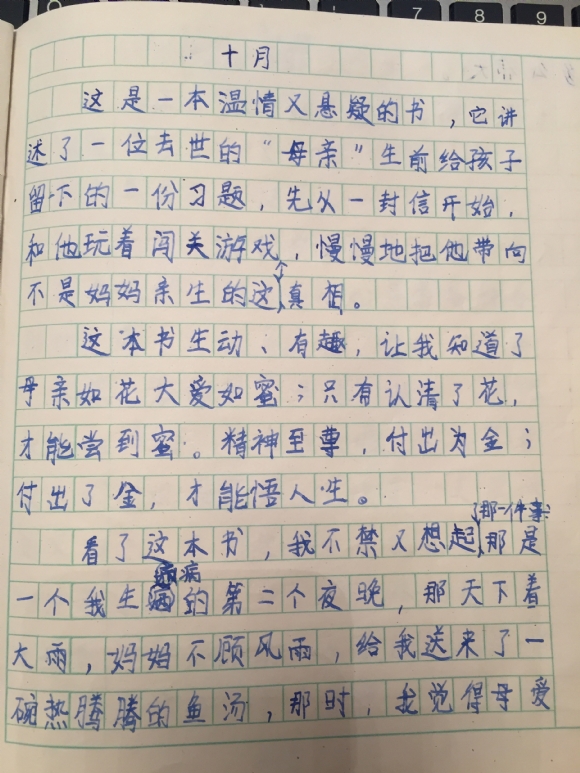 7 8 9
十月
这是一本温情又悬疑的书，它讲
述了一位去世的“母亲”生前给孩子
留下的一份习题，先从一封信开始，
和他玩着闯关游戏，慢慢地把他带向
不是妈妈亲生的这个真相。
这本书生动、有趣，让我知道了
母亲如花大爱如蜜；只有认清了花，
才能尝到蜜。精神至尊，付出为金；
付出了金，才能悟人生。
看了这本书，我不禁又想起了那一件事：那是
一个我生病的第二个夜晚，那天下着
大雨，妈妈不顾风雨，给我送来了一
碗热腾腾的鱼汤，那时，我觉得母爱